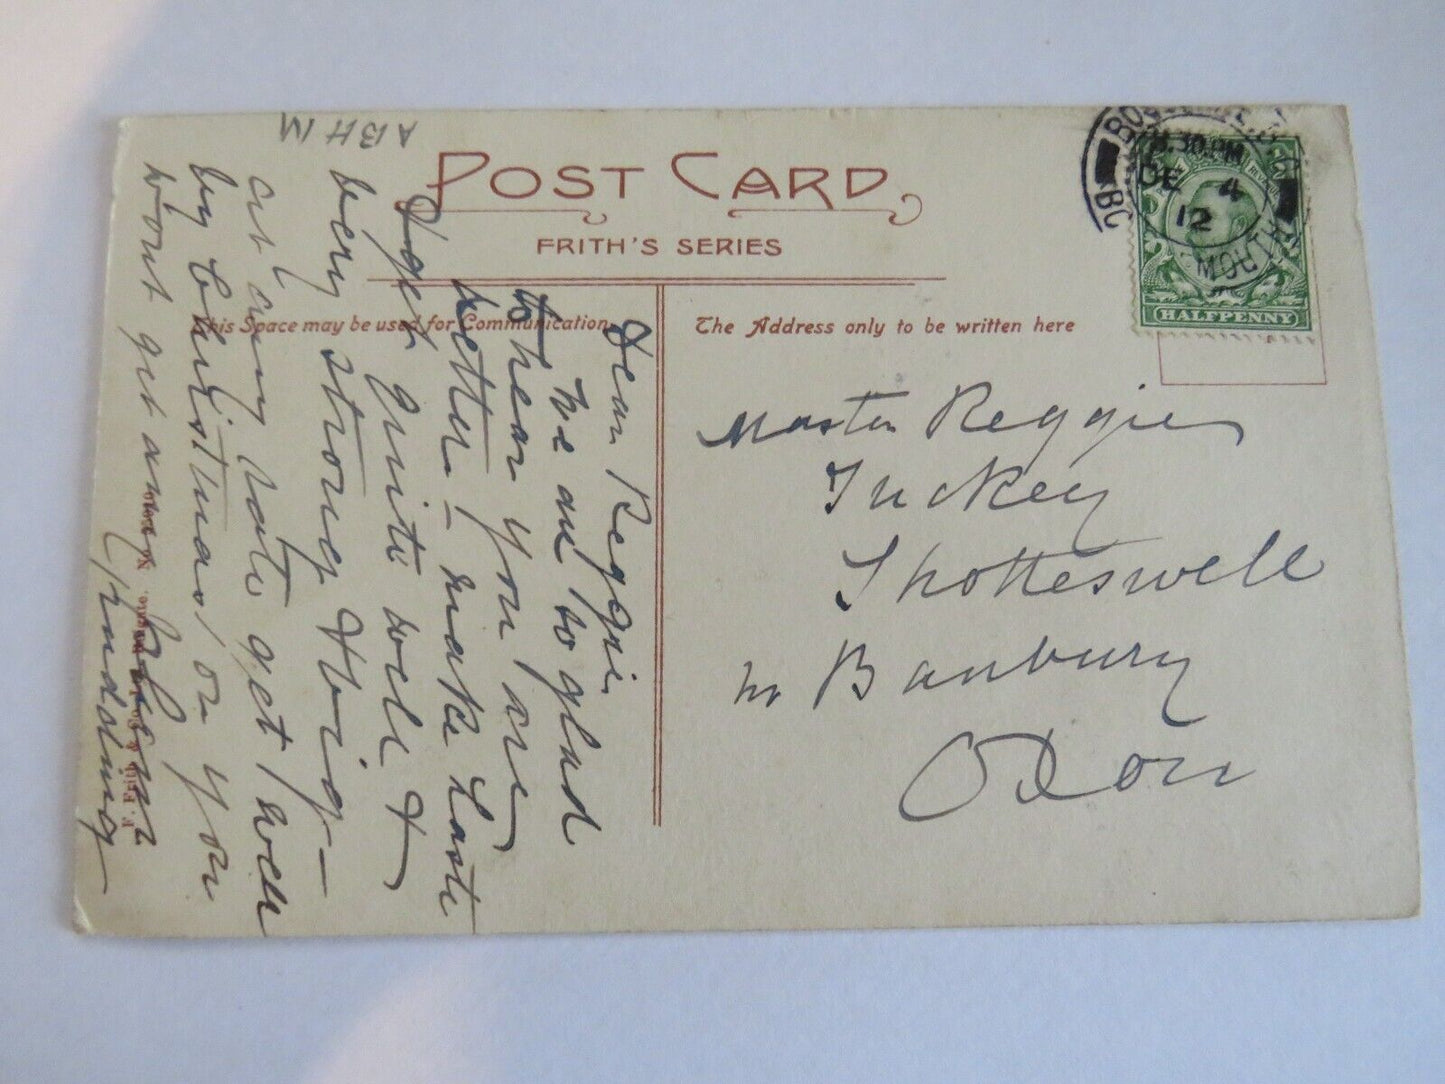 POST CARD
FRITH'S SERIES
This Space may be used for Communication.
The Address only to be written here
HALFPENNY
8.30 PM
DE 4
12
ABHM
Master Reggie
Tuckey
Shotteswell
nr Banbury
Oxon
Dear Reggie
We are so glad
to hear you are
better - make haste
& get quite well &
very strong & big -
at any rate get well
by Christmas, or you
wont get any
pudding
F. Frith & Co. Ld. Reigate. No.